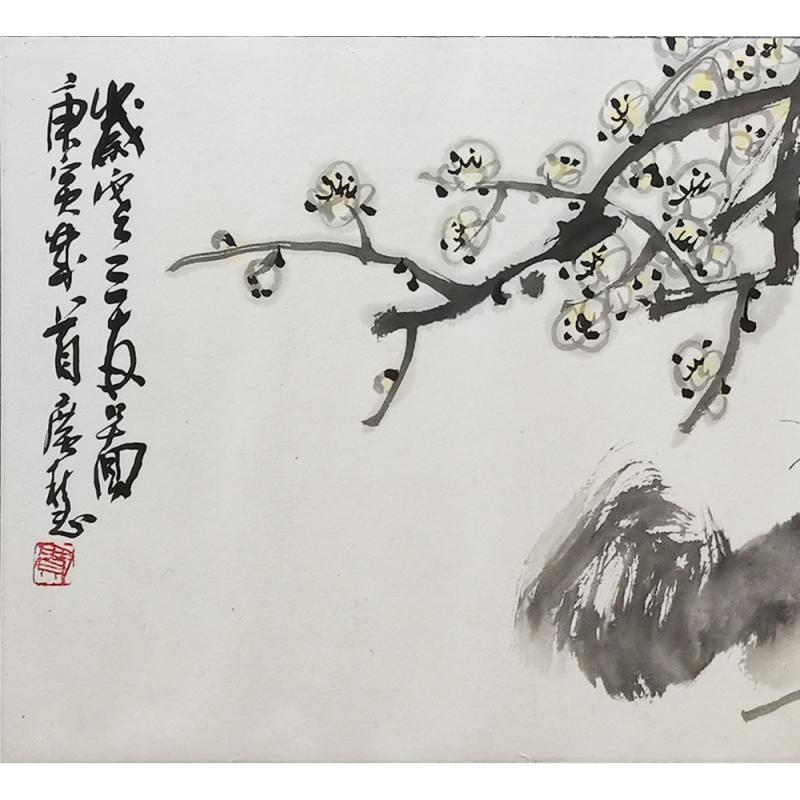 歲寒三友圖
庚寅歲首广慧